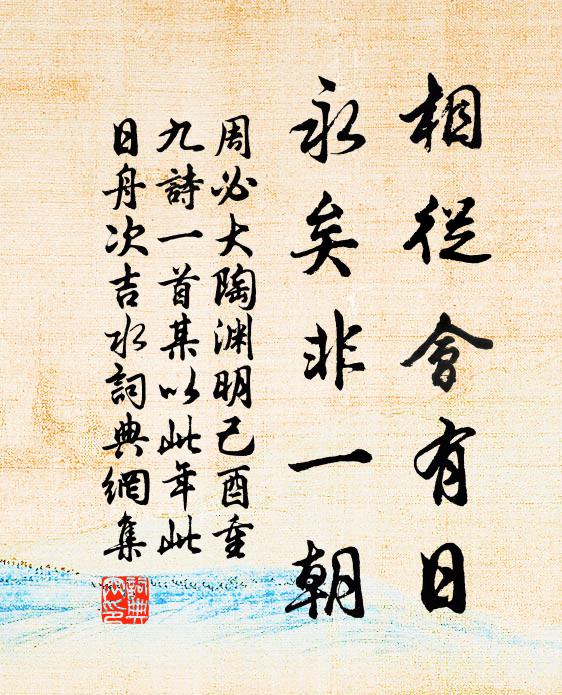 相從會有日
永矣非一朝
周必大陶渊明己酉重
九詩一首某以此年此
日舟次吉水詞典網集